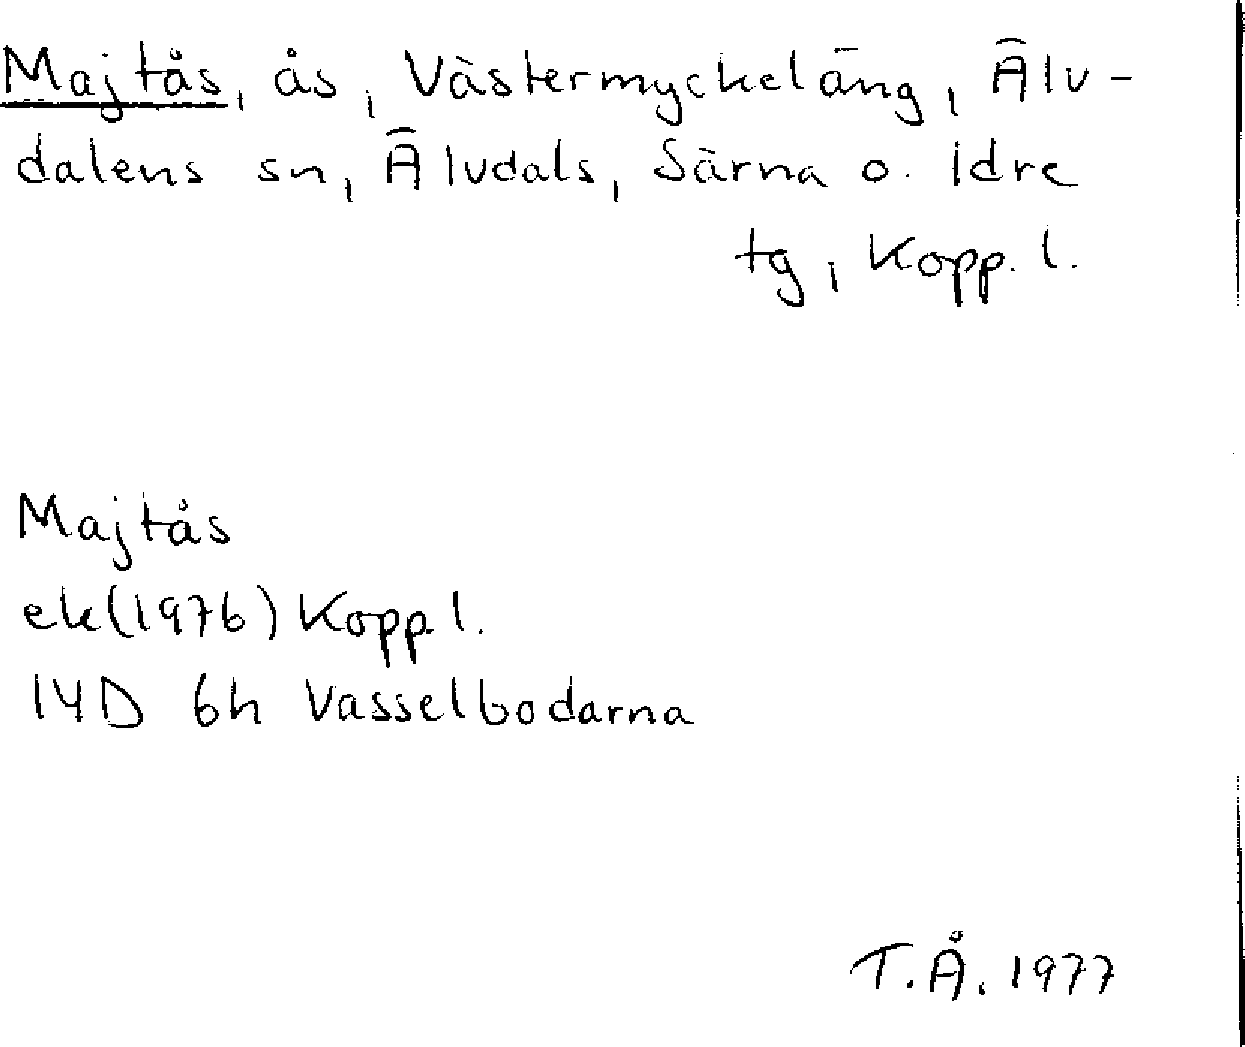 Majtås, ås, Västermyckeläng, Älv-
dalens sn, Älvdals, Särna o. Idre
tg, Kopp. l.
Majtås
ek(1976) Kopp l.
14D 6h Vasselbodarna
T.Å. 1977